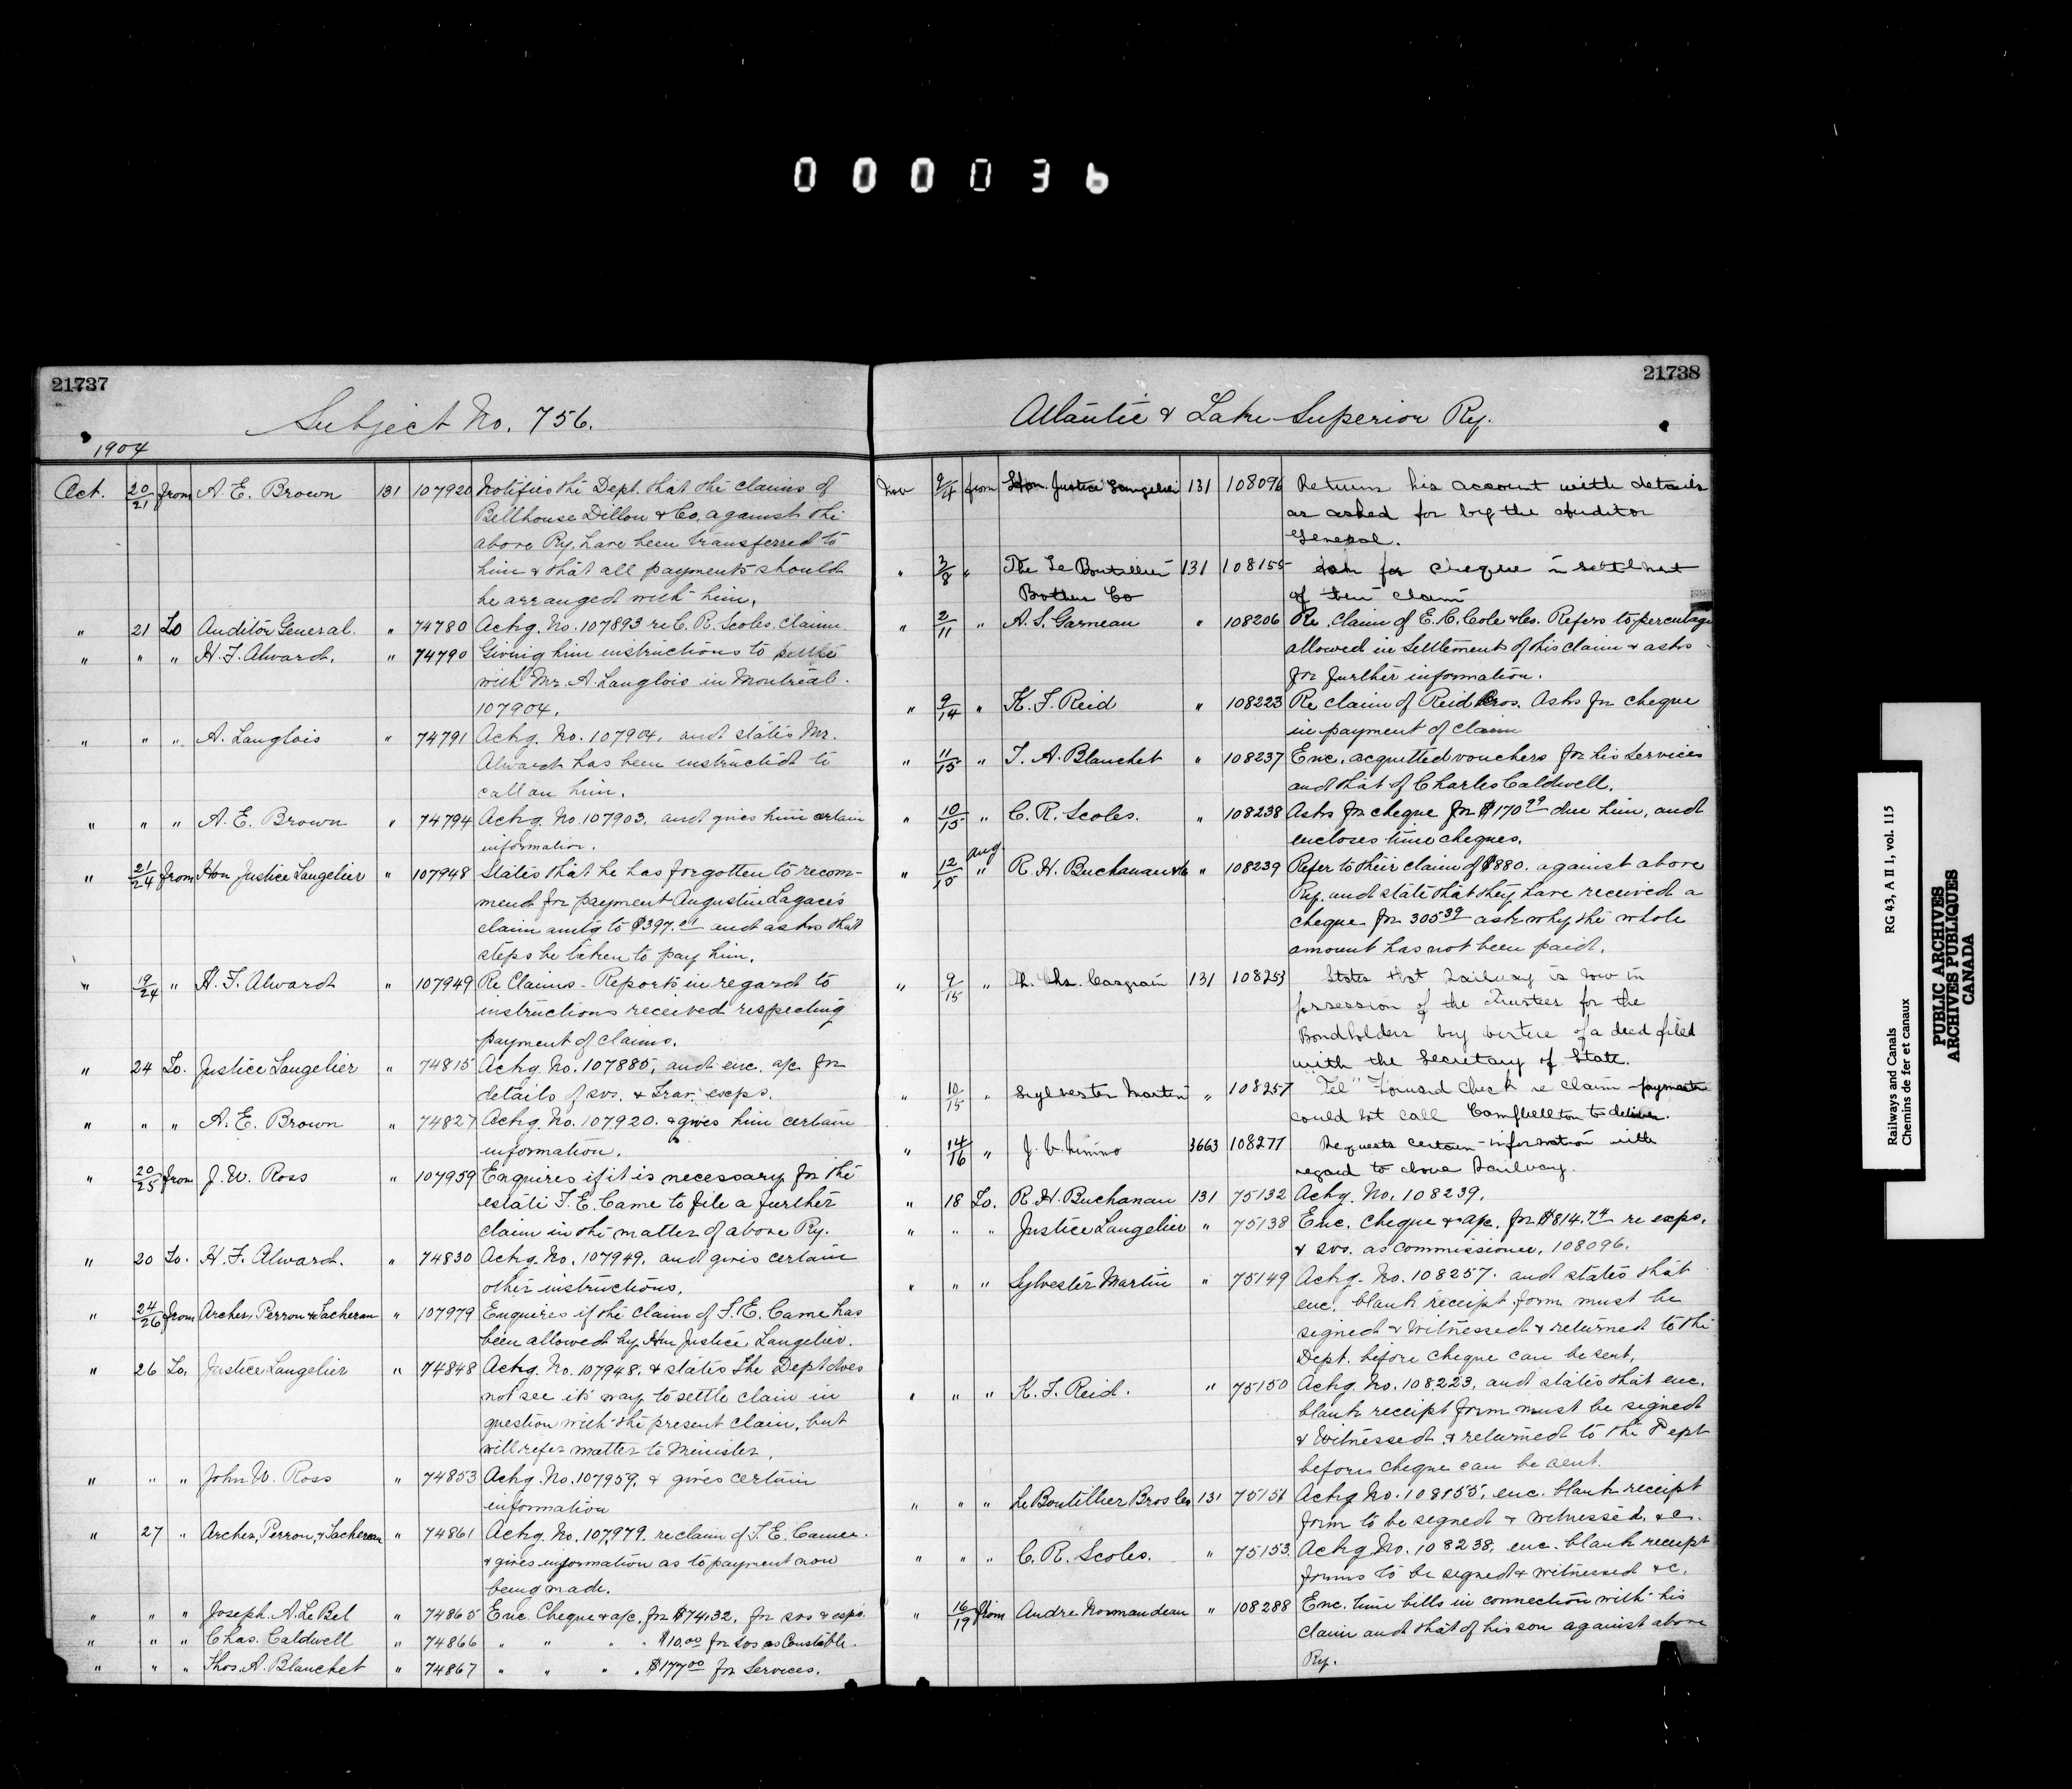 000036
21737
Subject No. 756.
1904
Oct. 20/21 from A. E. Brown 131 107920 Notifies the Dept. that the claims of
Bellhouse Dillon & Co, against the
above Ry. have been transferred to
him & that all payments should
be arranged with him.
" 21 To Auditor General. " 74780 Ackg. No. 107893 re C. R. Scoles, claim.
" " " H. F. Alward. " 74790 Giving him instructions to settle
with Mr. A. Langlois in Montreal.
107904.
" " " A. Langlois " 74791 Ackg. No. 107904, and states Mr.
Alward has been instructed to
call on him.
" " " A. E. Brown " 74794 Ackg. No. 107903. and gives him certain
information.
" 21/24 from Hon Justice Langelier " 107948 States that he has forgotten to recom-
mend for payment Augustin Lagace's
claim amtg to $397.01 and asks that
steps be taken to pay him.
" 19/24 " H. F. Alward " 107949 Re Claims - Reports in regard to
instructions received respecting
payment of claims.
" 24 To. Justice Langelier " 74815 Ackg. No. 107885, and enc. a/c for
details of svs. & Trav. exps.
" " " A. E. Brown " 74827 Ackg. No. 107920. & gives him certain
information.
" 20/25 from J. W. Ross " 107959 Enquires if it is necessary for the
estate T. E. Came to file a further
claim in the matter of above Ry.
" 20 To. H. F. Alward. " 74830 Ackg. No. 107949. and gives certain
other instructions.
" 24/26 from Archer, Perron & Tacheran " 107979 Enquires if the claim of T. E. Came has
been allowed by Hon Justice Langelier.
" 26 To. Justice Langelier " 74848 Ackg. No. 107948. & states the Dept does
not see its way to settle claim in
question with the present claim, but
will refer matter to Minister.
" " " John W. Ross " 74853 Ackg. No. 107959. & gives certain
information
" 27 " Archer, Perron, & Tacheran " 74861 Ackg. No. 107979. re claim of T. E. Camee.
& gives information as to payment now
being made.
" " " Joseph. A. Le Bel " 74865 Enc. Cheque & a/c, for $74.32, for svs & exps.
" " " Chas. Caldwell " 74866 " " " " $10.00 for svs as Constable.
" " " Thos. A. Blanchet " 74867 " " " " $177.00 for Services.
21738
Atlantic & Lake Superior Ry.
Nov 2/4 from Hon. Justice Langelier 131 108096 Return his account with details
as asked for by the Auditor
General.
" 3/8 " The Le Boutillier 131 108155 Ask for cheque in settlment
Brothers Co of their claim
" 2/11 " A. S. Garneau " 108206 Re. Claim of E. C. Cole & Co. Refers to percentage
allowed in settlement of his claim & asks
for further information.
" 9/14 " K. F. Reid " 108223 Re claim of Reid Bros. Asks for cheque
in payment of claim
" 11/15 " T. A. Blanchet " 108237 Enc. acquitted vouchers for his services
and that of Charles Caldwell.
" 10/15 " C. R. Scoles. " 108238 Asks for cheque for $170.99 due him, and
encloses time cheques.
" 12/15 Aug " R. H. Buchanan & Co " 108239 Refer to their claim of $880. against above
Ry. and state that they have received a
cheque for 305.39 ask why the whole
amount has not been paid.
" 9/15 " Th. Chs. Casgrain 131 108253 States that Railway is now in
possession of the Trustees for the
Bondholders by virtue of a deed filed
with the Secretary of State.
" 10/15 " Sylvester Martin " 108257 Tel" Forward check re claim paymaster
could not call Campbellton to deliver.
" 14/16 " J. V. Nimmo 3663 108277 Requests certain information with
regard to above Railway.
" 18 To. R. H. Buchanan 131 75132 Ackg. No. 108239.
" " " Justice Langelier " 75138 Enc. Cheque & a/c, for $814.74 re exps.
& svs. as Commissioner, 108096.
" " " Sylvester Martin " 75149 Ackg. No. 108257. and states that
enc. blank receipt form must be
signed & Witnessed & returned to the
Dept. before cheque can be sent.
" " " K. F. Reid. " 75150 Ackg. No. 108223, and states that enc.
blank receipt form must be signed
& Witnessed & returned to the Dept
before cheque can be sent.
" " " Le Boutillier Bros Co 131 75151 Ackg No. 108155, enc. blank receipt
form to be signed & witnessed. &c.
" " " C. R. Scoles. " 75153. Ackg No. 108238, enc. blank receipt
forms to be signed & witnessed &c.
" 16/19 from Andre Normandeau " 108288 Enc. time bills in connection with his
claim and that of his son against above
Ry.
Railways and Canals
Chemins de fer et canaux
RG 43, A II 1, vol. 115
PUBLIC ARCHIVES
ARCHIVES PUBLIQUES
CANADA